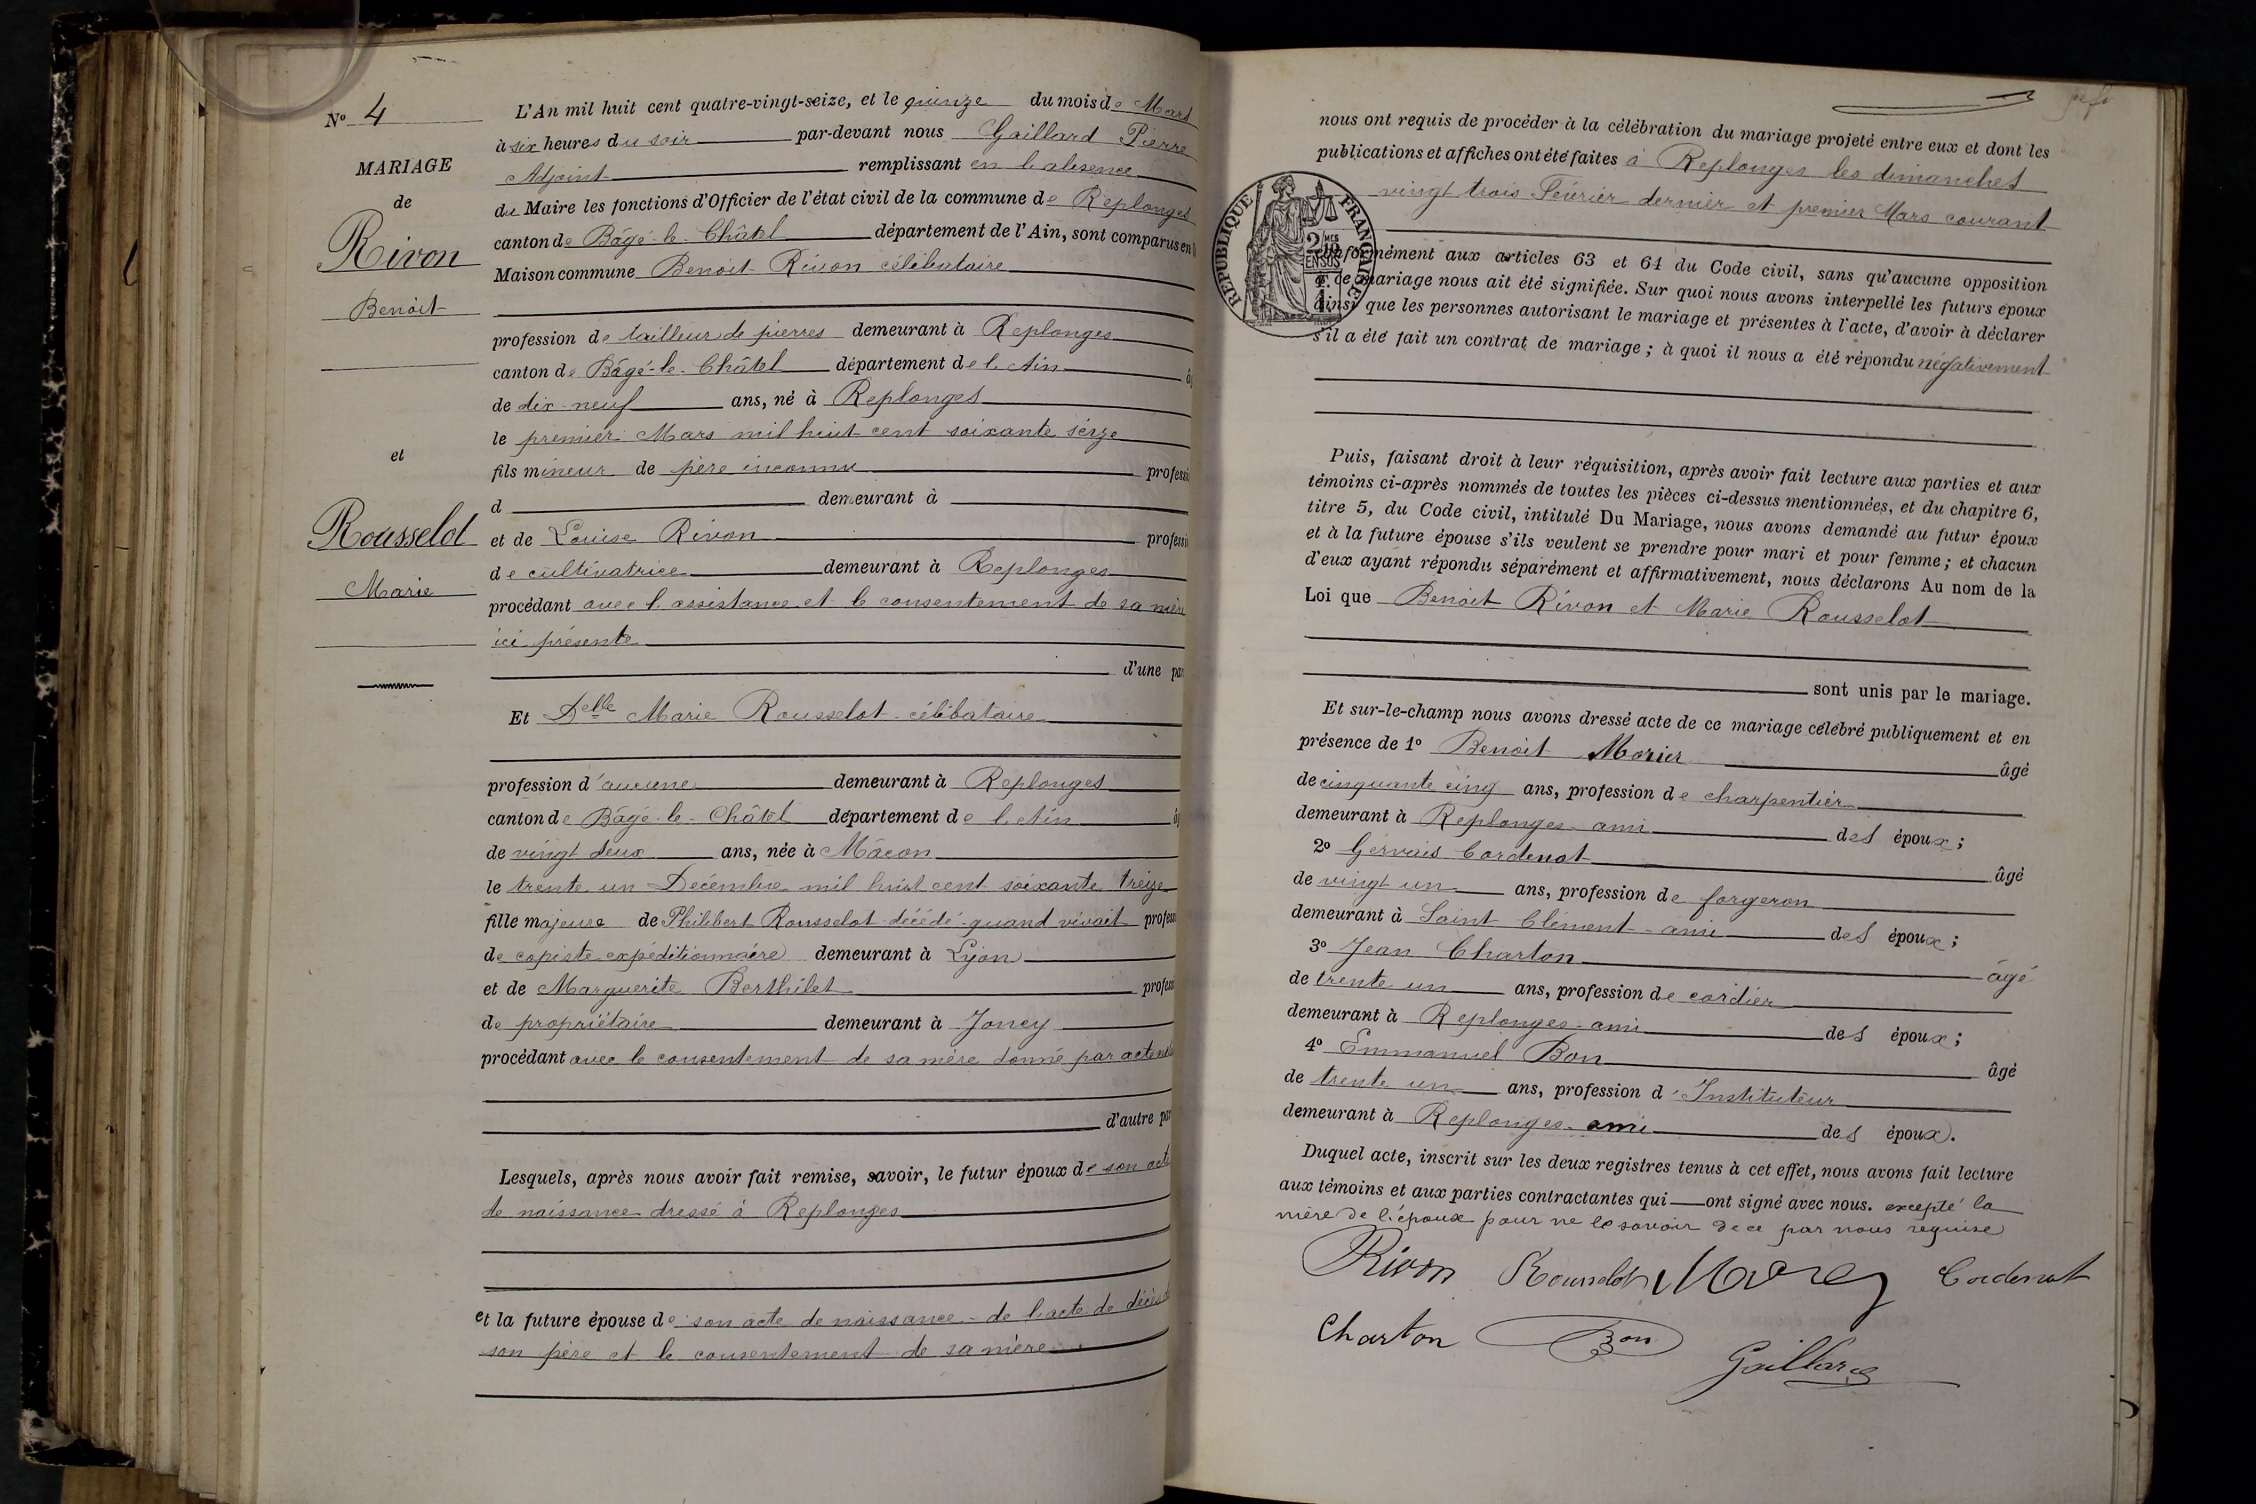 Nº 4
MARIAGE
de
Rivon
Benoît
et
Rousselot
Marie
L'An mil huit cent quatre-vingt-seize, et le quinze du mois de Mars
à six heures du soir par-devant nous Gaillard Pierre
Adjoint remplissant en l'absence
du Maire les fonctions d'Officier de l'état civil de la commune de Replonges
canton de Bâgé-le-Châtel département de l'Ain, sont comparus en
Maison commune Benoit Rivon célibataire
profession de tailleur de pierres demeurant à Replonges
canton de Bâgé-le-Châtel département de l'Ain
de dix-neuf ans, né à Replonges
le premier Mars mil huit cent soixante seize
fils mineur de père inconnu professi
d demeurant à
et de Louise Rivon professi
de cultivatrice demeurant à Replonges
procédant avec l'assistance et le consentement de sa mère
ici présente
d'une par
Et Delle Marie Rousselot célibataire
profession d'aucune demeurant à Replonges
canton de Bâgé-le-Châtel département de l'Ain
de vingt deux ans, née à Mâcon
le trente un Décembre mil huit cent soixante treize
fille majeure de Philibert Rousselot décédé quand vivait profess
de copiste expéditionnaire demeurant à Lyon
et de Marguerite Berthilet profess
de propriétaire demeurant à Joncy
procédant avec le consentement de sa mère donné par acte
d'autre par
Lesquels, après nous avoir fait remise, savoir, le futur époux de son acte
de naissance dressé à Replonges
et la future épouse de son acte de naissance - de l'acte de décès
son père et le consentement de sa mère
nous ont requis de procéder à la célébration du mariage projeté entre eux et dont les
publications et affiches ont été faites à Replonges les dimanches
vingt trois Février dernier et premier Mars courant
RÉPUBLIQUE FRANÇAISE
conformément aux articles 63 et 64 du Code civil, sans qu'aucune opposition
à ce mariage nous ait été signifiée. Sur quoi nous avons interpellé les futurs époux
ainsi que les personnes autorisant le mariage et présentes à l'acte, d'avoir à déclarer
s'il a été fait un contrat de mariage ; à quoi il nous a été répondu négativement
Puis, faisant droit à leur réquisition, après avoir fait lecture aux parties et aux
témoins ci-après nommés de toutes les pièces ci-dessus mentionnées, et du chapitre 6,
titre 5, du Code civil, intitulé Du Mariage, nous avons demandé au futur époux
et à la future épouse s'ils veulent se prendre pour mari et pour femme ; et chacun
d'eux ayant répondu séparément et affirmativement, nous déclarons Au nom de la
Loi que Benoit Rivon et Marie Rousselot
sont unis par le mariage.
Et sur-le-champ nous avons dressé acte de ce mariage célébré publiquement et en
présence de 1º Benoit Morier âgé
de cinquante cinq ans, profession de charpentier
demeurant à Replonges ami des époux ;
2º Gervais Cordenot âgé
de vingt un ans, profession de forgeron
demeurant à Saint Clément - ami des époux ;
3º Jean Charton âgé
de trente un ans, profession de cordier
demeurant à Replonges ami des époux ;
4º Emmanuel Bon âgé
de trente un ans, profession d'Instituteur
demeurant à Replonges - ami des époux.
Duquel acte, inscrit sur les deux registres tenus à cet effet, nous avons fait lecture
aux témoins et aux parties contractantes qui ont signé avec nous. excepté la
mère de l'époux pour ne le savoir de ce par nous requise
Rivon Rousselot Cordenot
Charton Bon
Gaillard